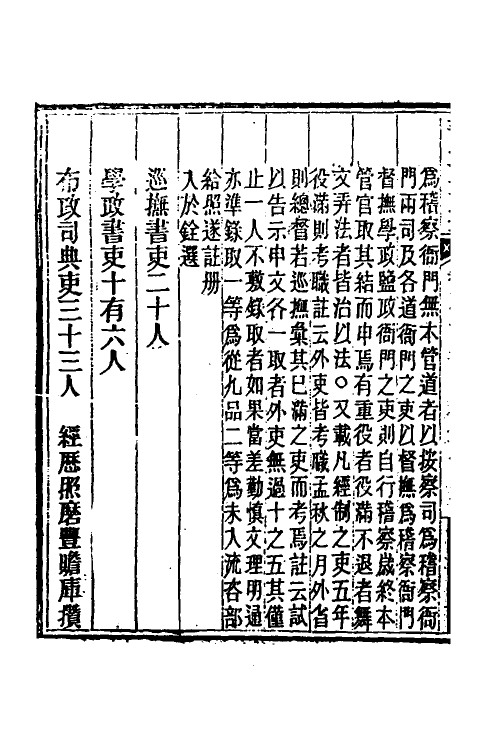 為稽察衙門無本管道者以按察司為稽察衙
門兩司及各道衙門之吏以督撫為稽察衙門
督撫學政鹽政衙門之吏則自行稽察歲終本
管官取其結而申焉有重役者役滿不退者舞
文弄法者皆治以法○又載凡經制之吏五年
役滿則考職註云外吏皆考職孟秋之月外省
則總督若巡撫彙其已滿之吏而考焉註云試
以告示申文各一取者外吏無過十之五其僅
止一人不敷錄取者如果當差勤慎文理明通
亦準錄取一等為從九品二等為未入流咨部
給照遂註册
入於銓選
巡撫書吏二十人
學政書吏十有六人
布政司典吏三十三人 經歷照磨豐贍庫攢